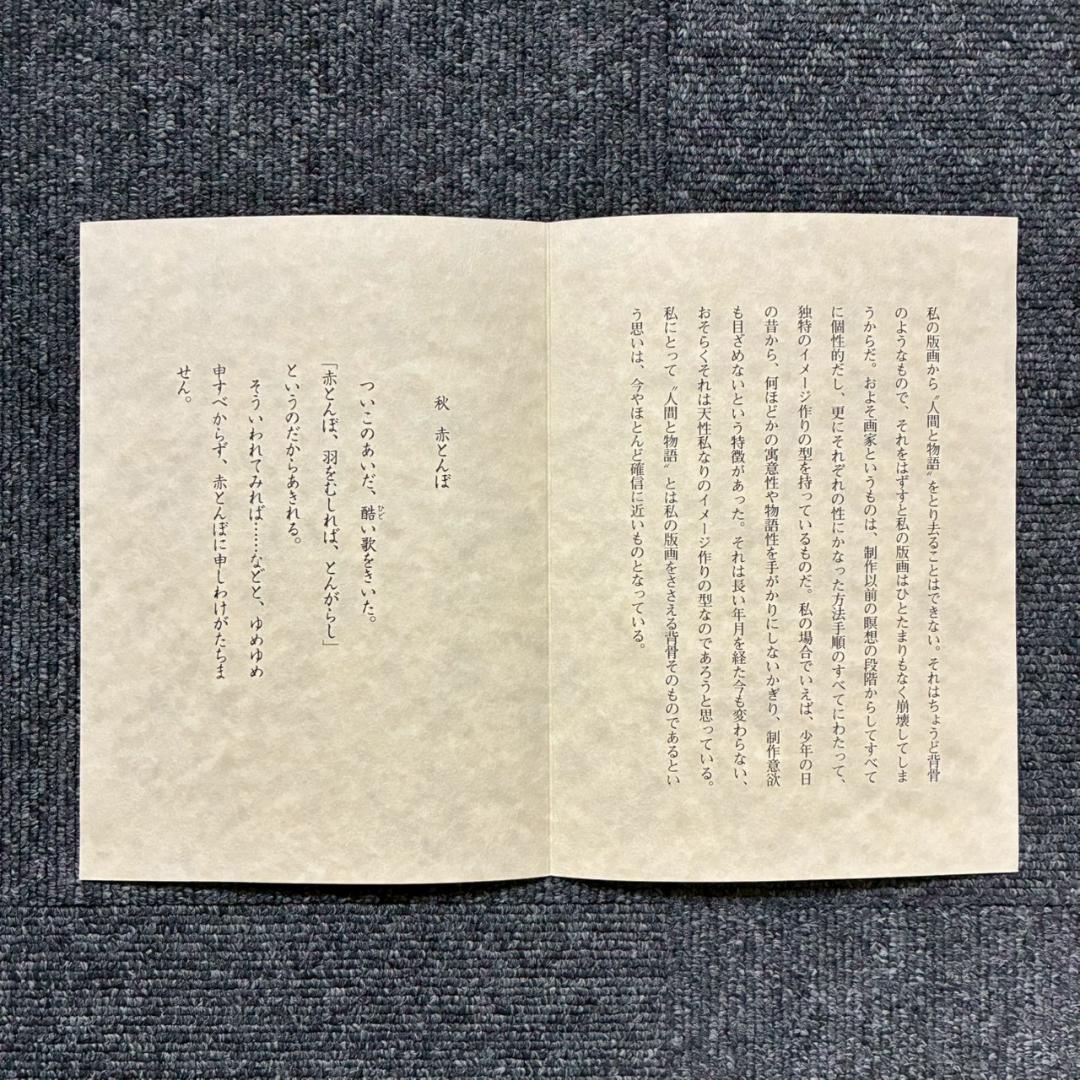 私の版画から〝人間と物語〟をとり去ることはできない。それはちょうど背骨
のようなもので、それをはずすと私の版画はひとたまりもなく崩壊してしま
うからだ。およそ画家というものは、制作以前の瞑想の段階からしてすべて
に個性的だし、更にそれぞれの性にかなった方法手順のすべてにわたって、
独特のイメージ作りの型を持っているものだ。私の場合でいえば、少年の日
の昔から、何ほどかの寓意性や物語性を手がかりにしないかぎり、制作意欲
も目ざめないという特徴があった。それは長い年月を経た今も変わらない、
おそらくそれは天性私なりのイメージ作りの型なのであろうと思っている。
私にとって〝人間と物語〟とは私の版画をささえる背骨そのものであるとい
う思いは、今やほとんど確信に近いものとなっている。
秋 赤とんぼ
ついこのあいだ、酷い歌をきいた。
ひど
「赤とんぼ、羽をむしれば、とんがらし」
というのだからあきれる。
そういわれてみれば……などと、ゆめゆめ
申すべからず、赤とんぼに申しわけがたちま
せん。